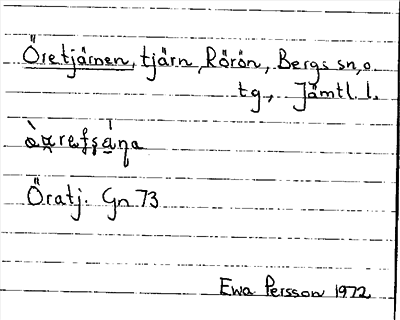 Öretjärnen, tjärn, Rörön, Bergs sn, o.
tg., Jämtl. l.
Öratj. Gn 73
Ewa Persson 1972